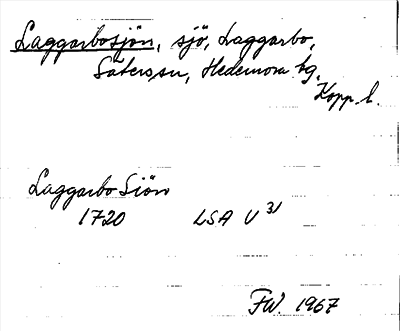 Laggarbosjön, sjö, Laggarbo,
Säters sn, Hedemora tg,
Kopp. l.
Laggarbo Siön
1720 LSA U 31
FW. 1967